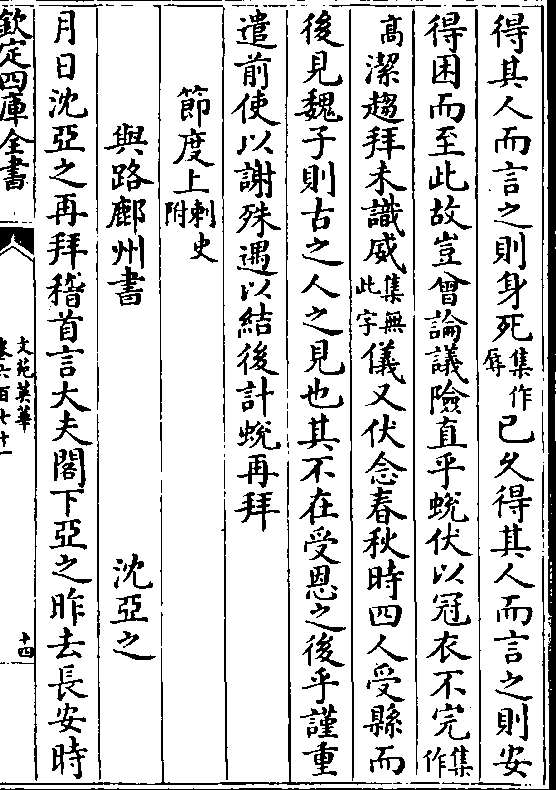 得其人而言之則身死集作辱已久得其人而言之則安
得困而至此故豈曾論議險直乎蛻伏以冠衣不完集作
高潔趨拜未識威集無此字儀又伏念春秋時四人受縣而
後見魏子則古之人之見也其不在受恩之後乎謹重
遣前使以謝殊遇以結後計蛻再拜
節度上刺史附
與路鄜州書 沈亞之
月日沈亞之再拜稽首言大夫閣下亞之昨去長安時
欽定四庫全書
文苑英華
卷六百七十一
十四